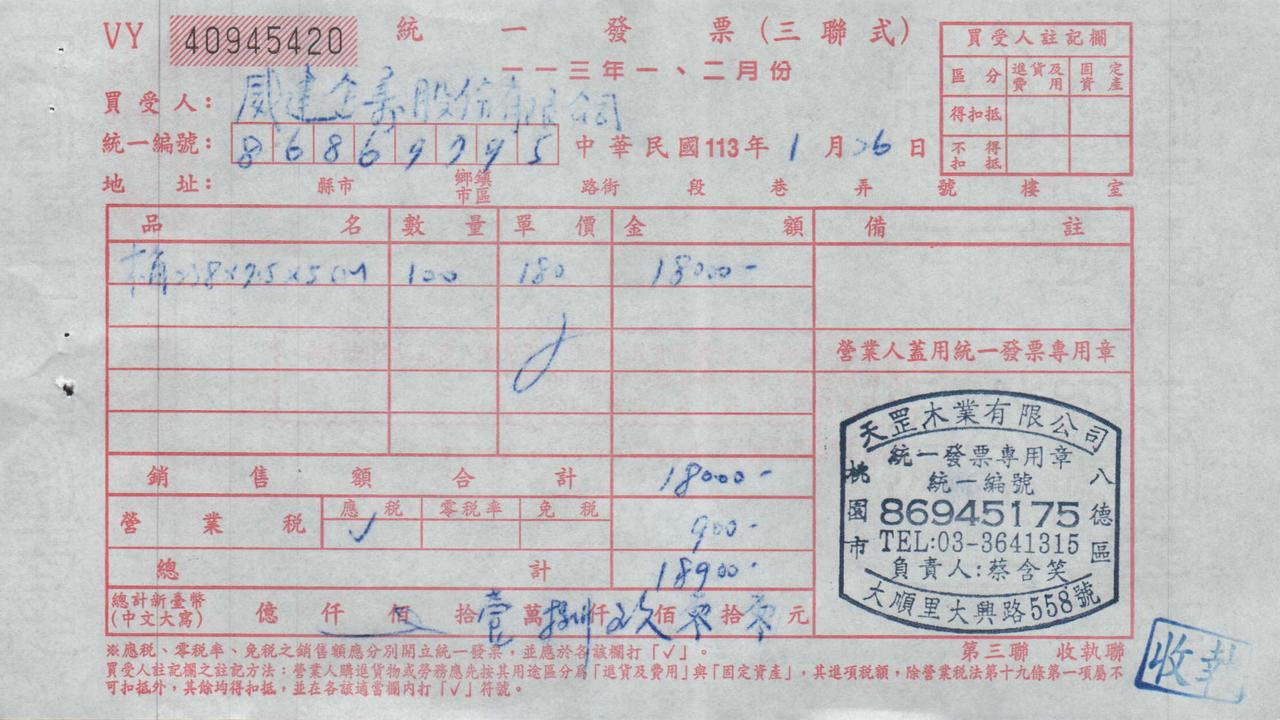 VY 40945420 統一發票(三聯式)
一一三年一、二月份
買受人註記欄
區分 進貨及費用 固定資產
得扣抵
不得扣抵
買受人: 威建企業股份有限公司
統一編號: 86869795 中華民國113年1月26日
地址: 縣市 鄉鎮市區 路街 段 巷 弄 號 樓 室
品名 數量 單價 金額 備註
238x7.5x5cm 100 180 18000-
營業人蓋用統一發票專用章
銷售額合計 18000-
營業稅 應稅 ✓ 零稅率 免稅 900-
總計 18900-
總計新臺幣(中文大寫) 億 仟 佰 拾 壹 萬 捌 仟 玖 佰 零 拾 零 元
天罡木業有限公司
統一發票專用章
統一編號
86945175
TEL:03-3641315
負責人:蔡含笑
桃園市 八德區
大順里大興路558號
※應稅、零稅率、免稅之銷售額應分別開立統一發票,並應於各該欄打「✓」。
第三聯 收執聯
買受人註記欄之註記方法:營業人購進貨物或勞務應先按其用途區分為「進貨及費用」與「固定資產」,其進項稅額,除營業稅法第十九條第一項屬不
可扣抵外,其餘均得扣抵,並在各該適當欄內打「✓」符號。
收執